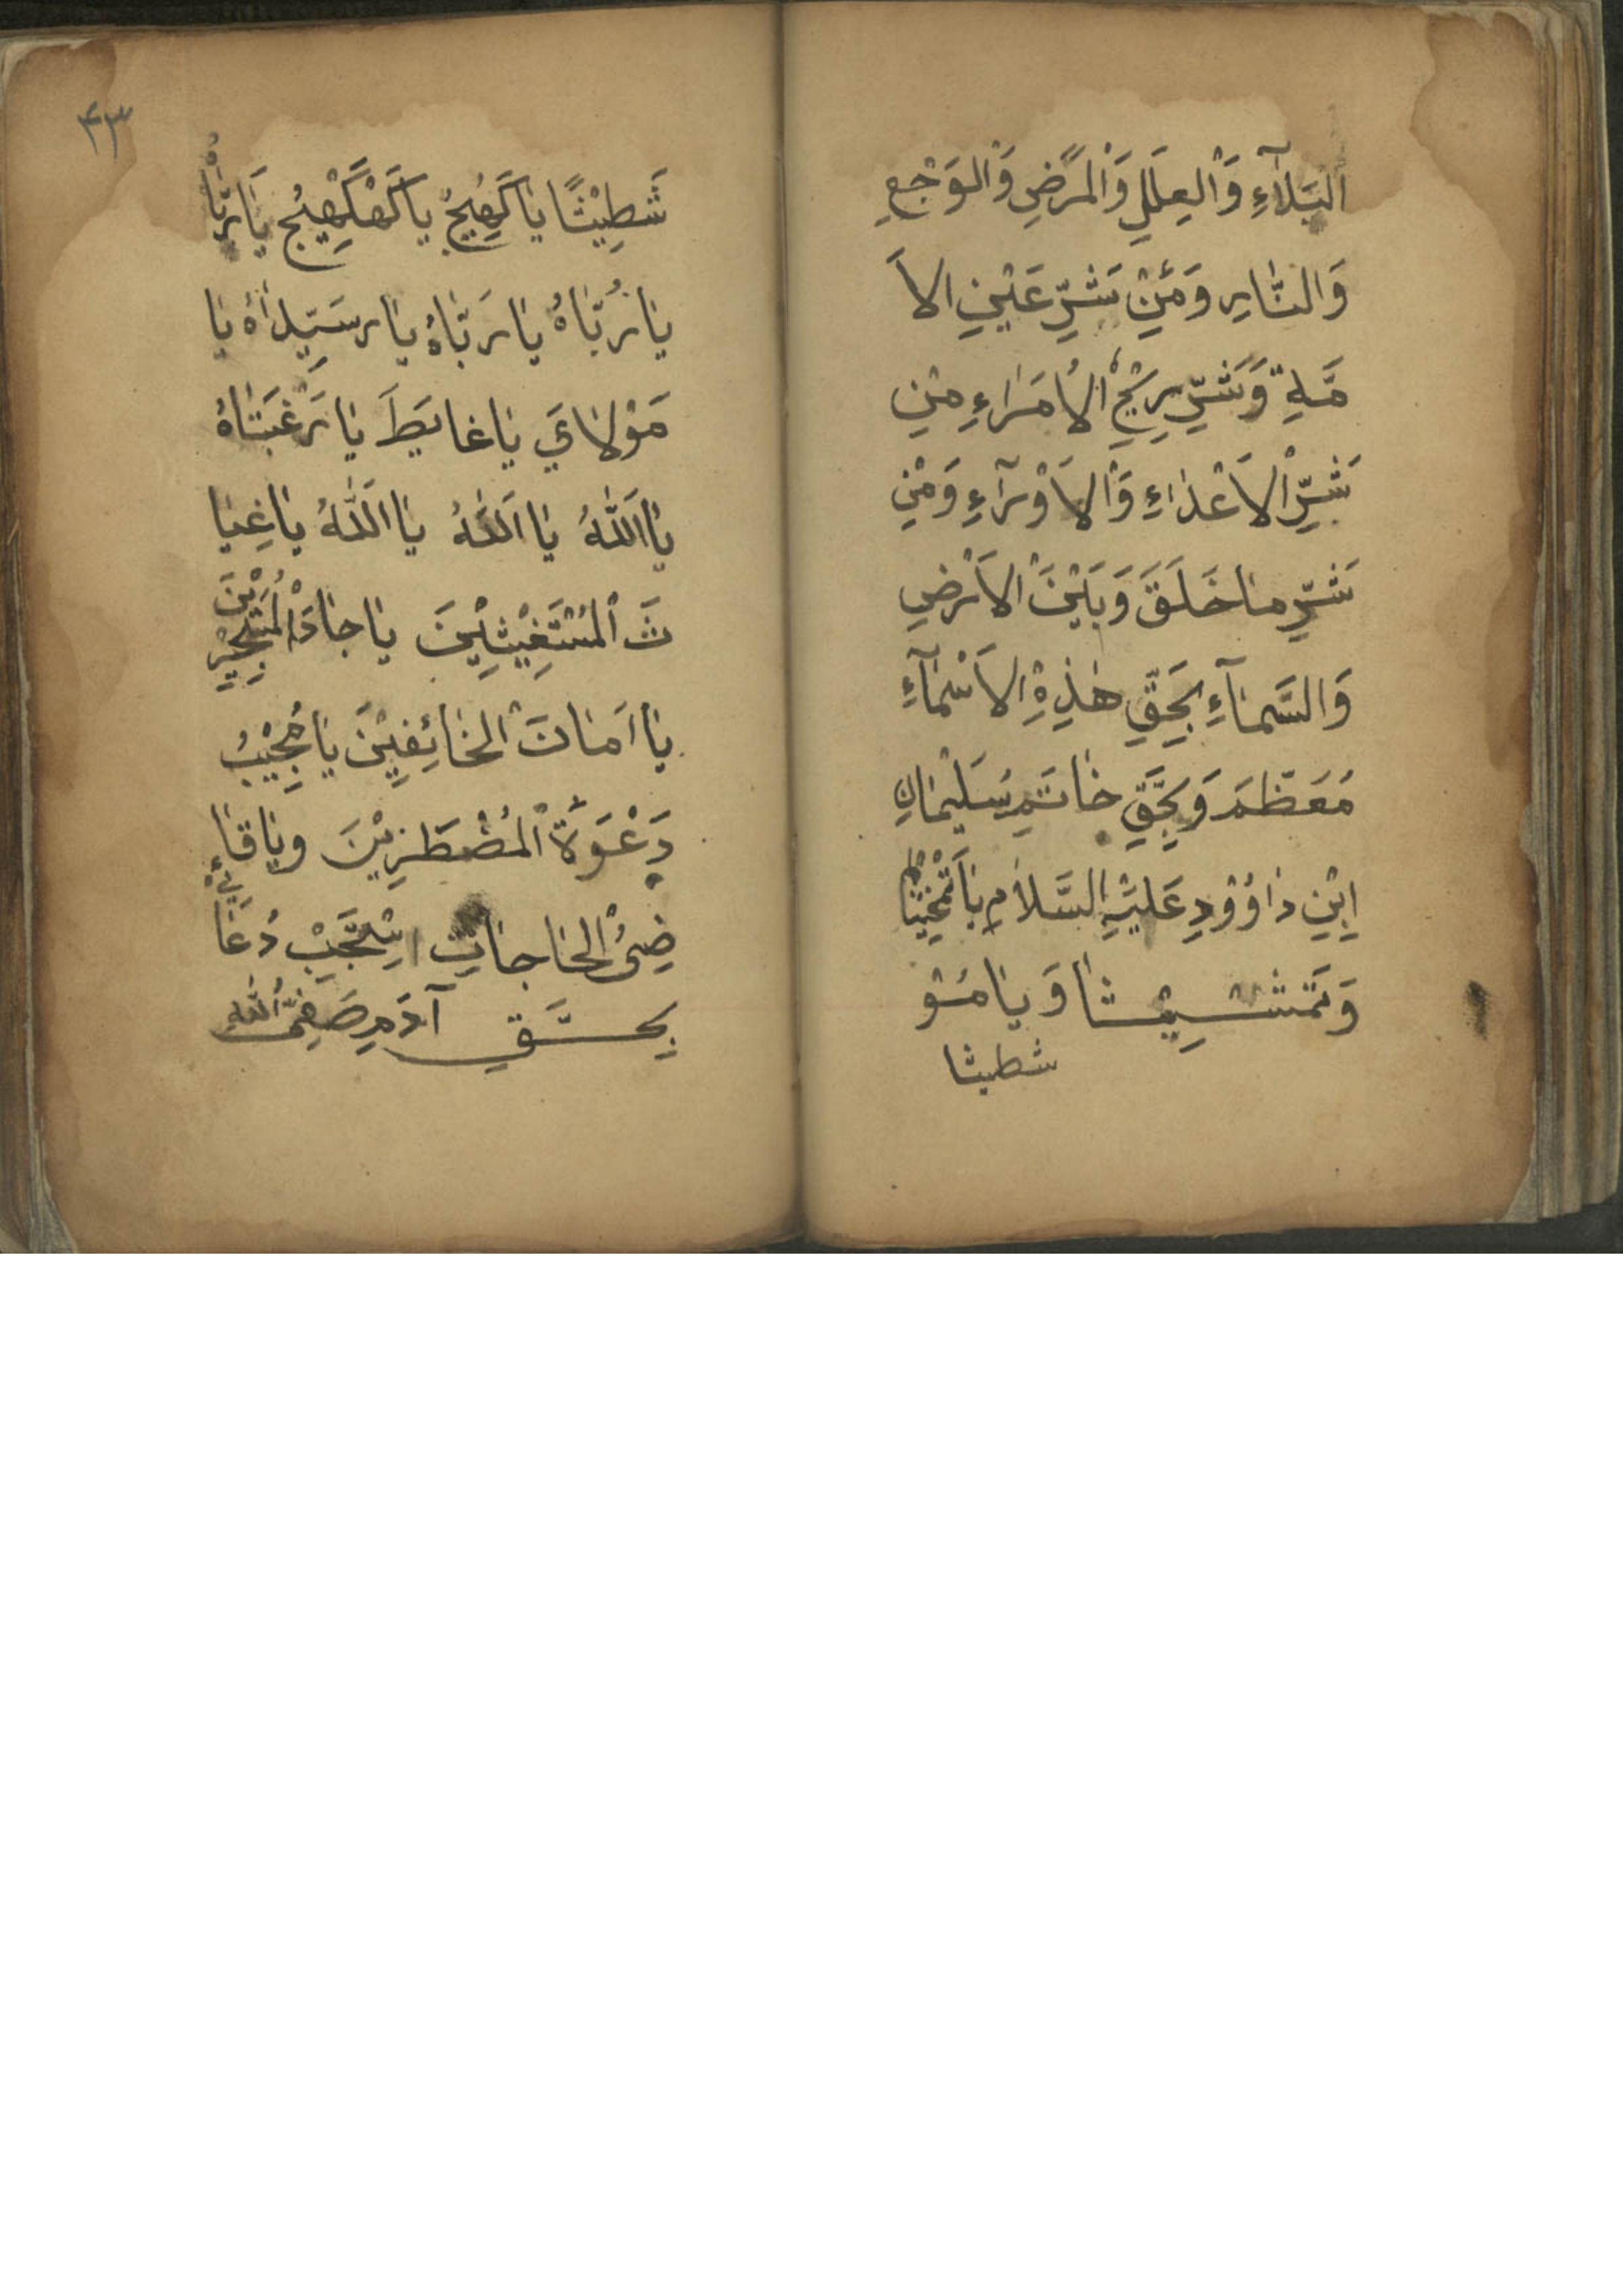 البَلَآءِ وَالْعِلَلِ وَالْمَرَضِ وَالْوَجَعِ
وَالنَّارِ وَمِنْ شَرِّ عَيْنِ الاَ
مَّةِ وَشَرِّ رِيْحِ الْاُمَرَاءِ مِنْ
شَرِّ الْاَعْدَاءِ وَالْاَوْرَآءِ وَمِنْ
شَرِّ مَا خَلَقَ وَبَيْنَ الْاَرْضِ
وَالسَّمَآءِ بِحَقِّ هٰذِهِ الْاَسْمَآءِ
مُعَظَّمَ وَبِحَقِّ خَاتَمِ سُلَيْمَانِ
ابْنِ دَاوُوْدِ عَلَيْهِ السَّلَامِ يَا
وَتَمَشِيْشَا وَيَا مَشْو
شطيثا
۴۳
شَطِيْثًا يَا كَهِيْجُ يَا كَهْكَهِيْجُ يَا رَبَّاهُ
يَا رَبَّاهُ يَا رَبَّاهُ يَا رسَيِّدَاهُ يَا
مَوْلَايَ يَا غَايَطَ يَا رَغْبَتَاهُ
يَا اَللّٰهُ يَا اَللّٰهُ يَا اَللّٰهُ يَا غِيَا
ثَ الْمُسْتَغِيْثِيْنَ يَا جَادَ الْمُسْتَجِيْرِيْنَ
يَا اَمَانَ الْخَائِفِيْنَ يَا مُجِيْبُ
دَعْوَةَ الْمُضْطَرِيْنَ وَيَا قَا
ضِىُ الْحَاجَاتِ اِسْتَجِبْ دُعَائِيْ
بِحَقِّ آدَمِ صَفِىُّ اللّٰهِ